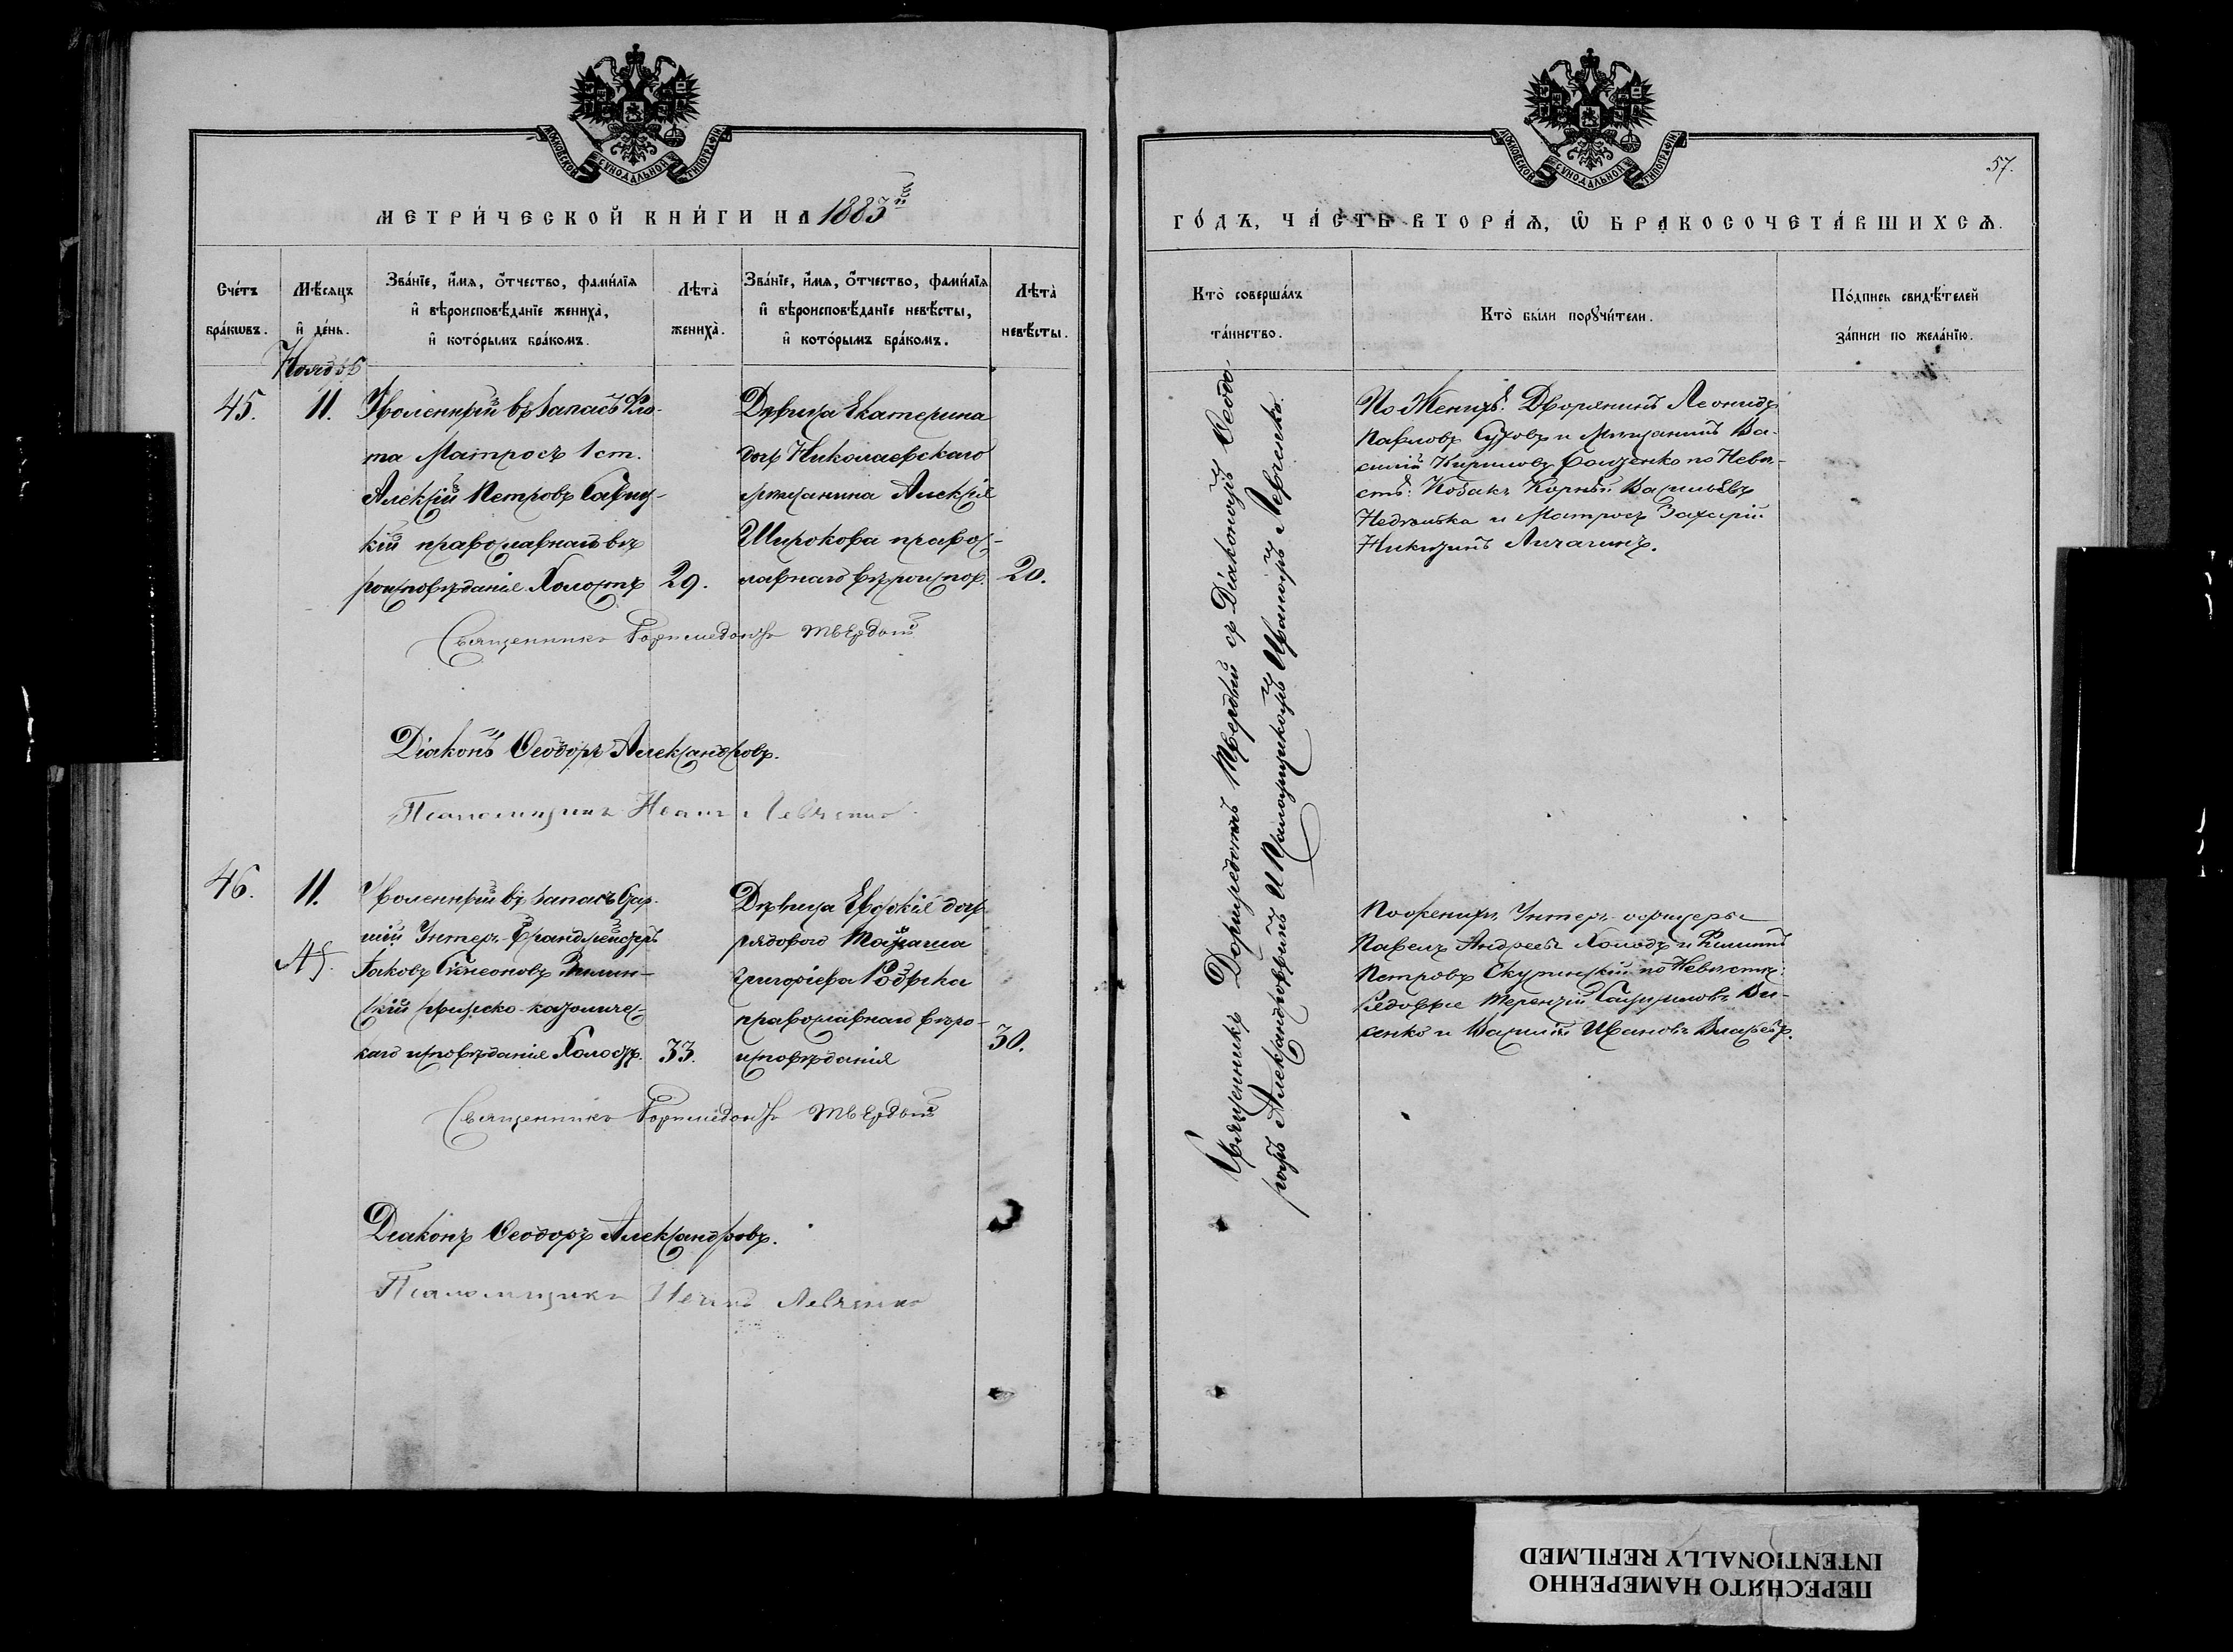 МОСКОВСКОЙ СѴНОДАЛЬНОЙ ТИПОГРАФІИ
МЕТРИ́ЧЕСКОЙ КНИ́ГИ НА 1883й
Сче́тъ бра́кѡвъ.
Мѣ́сяцъ и де́нь.
Зва́нїе, и́мя, о́тчество, фами́лїя
и вѣроисповѣ́данїе жениха̀,
и кото́рымъ бра́комъ.
Лѣта̀ жениха̀.
Зва́нїе, и́мя, о́тчество, фами́лїя
и вѣроисповѣ́данїе невѣ́сты,
и кото́рымъ бра́комъ.
Лѣта̀ невѣ́сты.
Ноябрь
45.
11.
Уволенный въ запасъ Фло-
та Матросъ 1 ст.
Алексѣй Петровъ
кій православнаго вѣ
роисповѣданія Холостъ
29.
Дѣвица Екатерина
дочь Николаевскаго
мѣщанина Алексѣя
Широкова правос-
лавнаго вѣроиспов.
20.
Священникъ Твердый
Діаконъ Ѳеодоръ Александровъ.
Псаломщикъ Иванъ Левченко
46.
11.
Уволенный въ запасъ Стар-
шій Унтеръ-
Іаковъ Симеоновъ
скій римско-католичес-
каго исповѣданія Холостъ.
33.
Дѣвица Евдокія дочь
рядового
Григорієва
православнаго вѣро-
исповѣданія
30.
Священникъ Твердый
Діаконъ Ѳеодоръ Александровъ.
Псаломщикъ Иванъ Левченко
МОСКОВСКОЙ СѴНОДАЛЬНОЙ ТИПОГРАФІИ
57.
ГО́ДЪ, ЧА́СТЬ ВТОРА́Я, Ѽ БРАКОСОЧЕТА́ВШИХСЯ.
Кто̀ соверша́лъ
та́инство.
Кто̀ бы́ли порꙋчи́тели.
По́дпись свидѣ́телей
за́писи по жела́нїю.
Священникъ Твердый съ Діакономъ Ѳеодо-
ромъ Александровымъ и Псаломщикомъ Иваномъ Левченко.
По Женихѣ: Дворянинъ Леонидъ
Павловъ Суховъ и Мѣщанинъ Ва-
силій Кириловъ по Невѣ-
стѣ: Козакъ Корнѣй Васильевъ
и Матросъ Захарій
Никитинъ
По женихѣ Унтеръ-офицеры
Павелъ Андреевъ Холодъ и Филипъ
Петровъ по Невѣстѣ:
Рядовые Терентій
сенко и Василій Ивановъ
ПЕРЕСНЯТО НАМЕРЕННО
INTENTIONALLY REFILMED